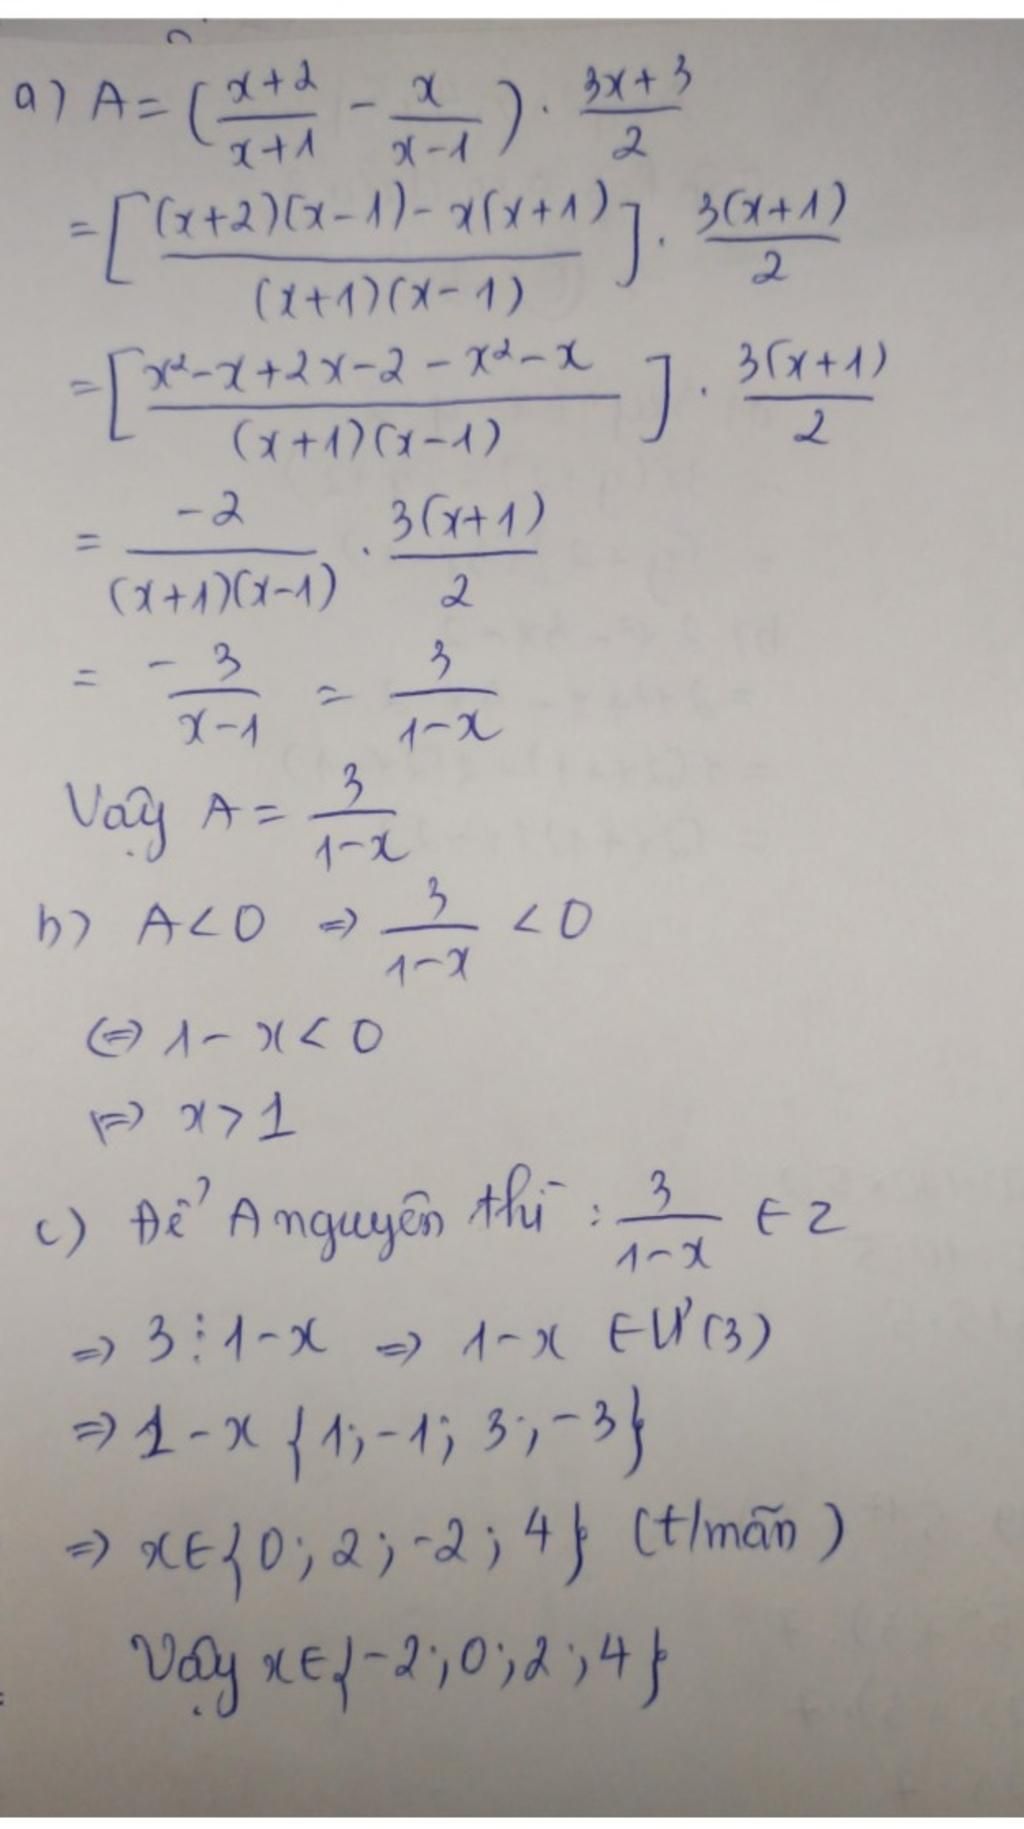 a) A = (x+2/x+1 - x/x-1) . 3x+3/2
= [(x+2)(x-1) - x(x+1)/(x+1)(x-1)] . 3(x+1)/2
= [x²-x+2x-2-x²-x/(x+1)(x-1)] . 3(x+1)/2
= -2/(x+1)(x-1) . 3(x+1)/2
= -3/x-1 = 3/1-x
Vậy A = 3/1-x
b) A<0 => 3/1-x < 0
<=> 1-x < 0
=> x > 1
c) Để A nguyên thì : 3/1-x ∈ Z
=> 3 ⋮ 1-x => 1-x ∈ Ư(3)
=> 1-x {1; -1; 3; -3}
=> x∈{0; 2; -2; 4} (t/mãn)
Vậy x∈{-2; 0; 2; 4}